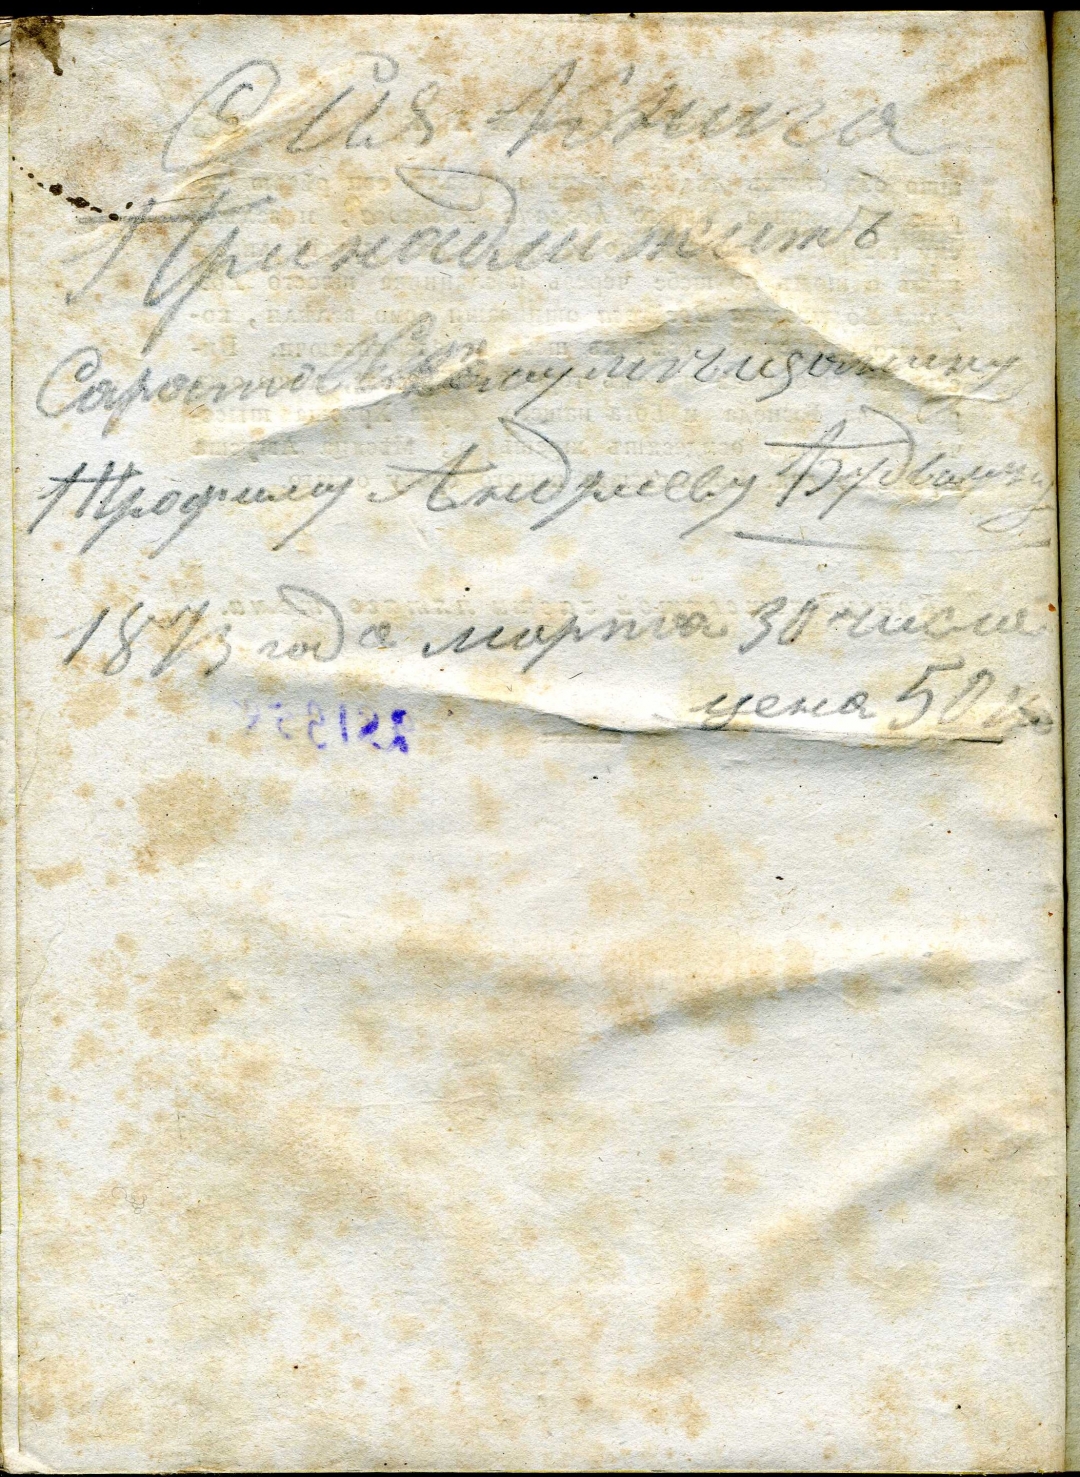 Сия Книга
Принадлижитъ
Саратовскому мещанину
Трофиму Андрееву
1873 года марта 30 числа
цена 50 к